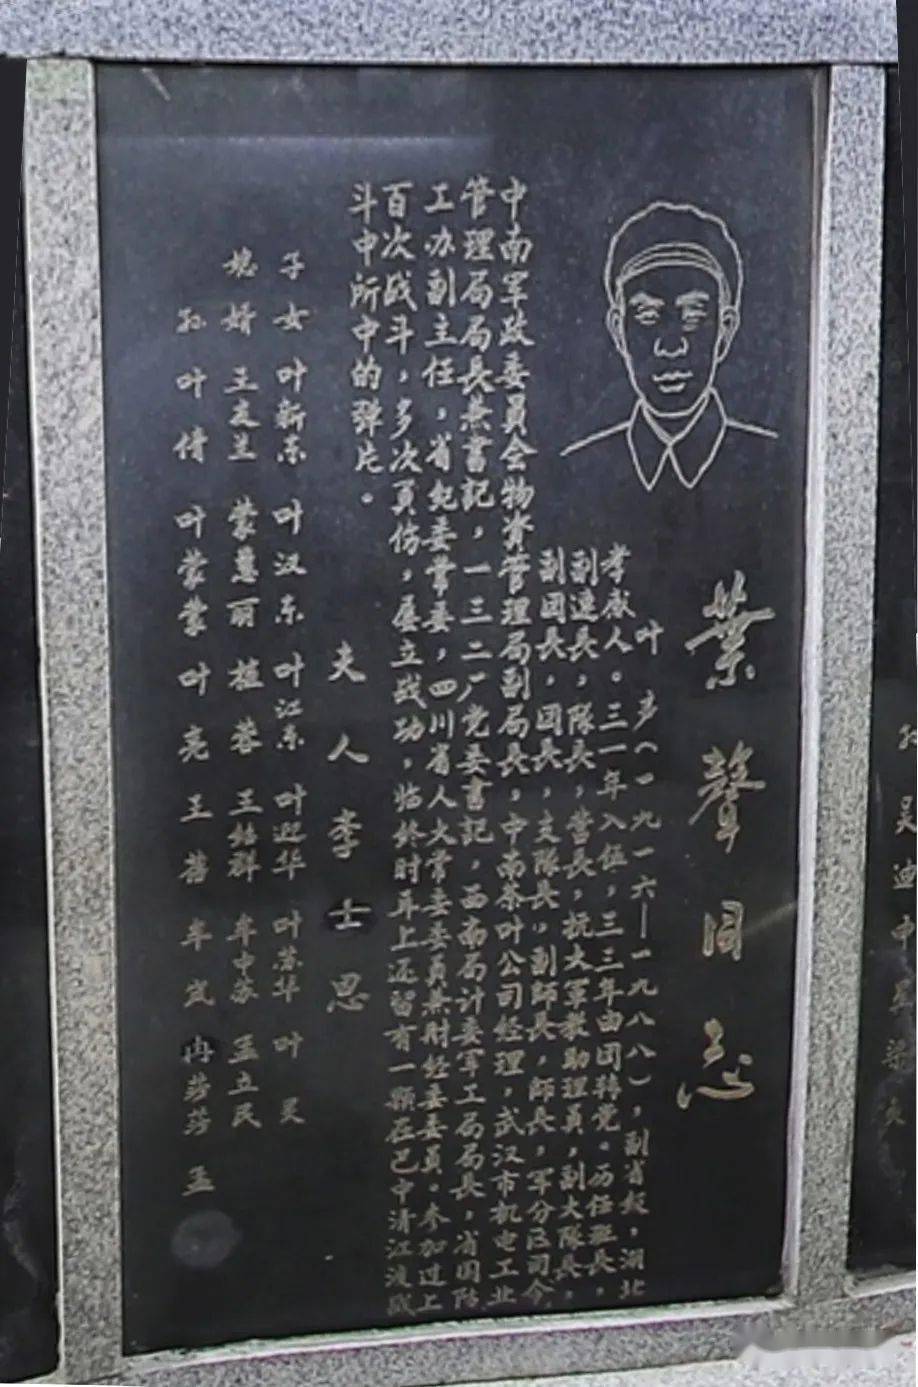 葉聲同志
叶 声（一九一六—一九八八），副省级，湖北
孝感人。三一年入伍，三三年由团转党。历任班长，
副连长，队长，营长，抗大军教助理员，副大队长，
副团长，团长，支队长，副師长，師长，军分区司令，
中南军政委員会物資管理局副局长，中南茶叶公司经理，武汉市机电工业
管理局局长兼書記，一三二厂党委書記，西南局计委军工局局长，省国防
工办副主任，省纪委常委，四川省人大常委委員兼財经委委員。参加过上
百次战斗，多次負伤，屡立战功，临終时耳上还留有一顆在巴中清江渡战
斗中所中的弹片。
夫人李士思
子女 叶新东 叶汉东 叶江东 叶迎华 叶苏华 叶灵
媳婿 王友兰 蒙蕙丽 桂蓉 王结群 牟中苏 孟立民
孙 叶倩 叶蒙蒙 叶亮 王蓓 牟岚 冉莎莎 孟
吴迪中